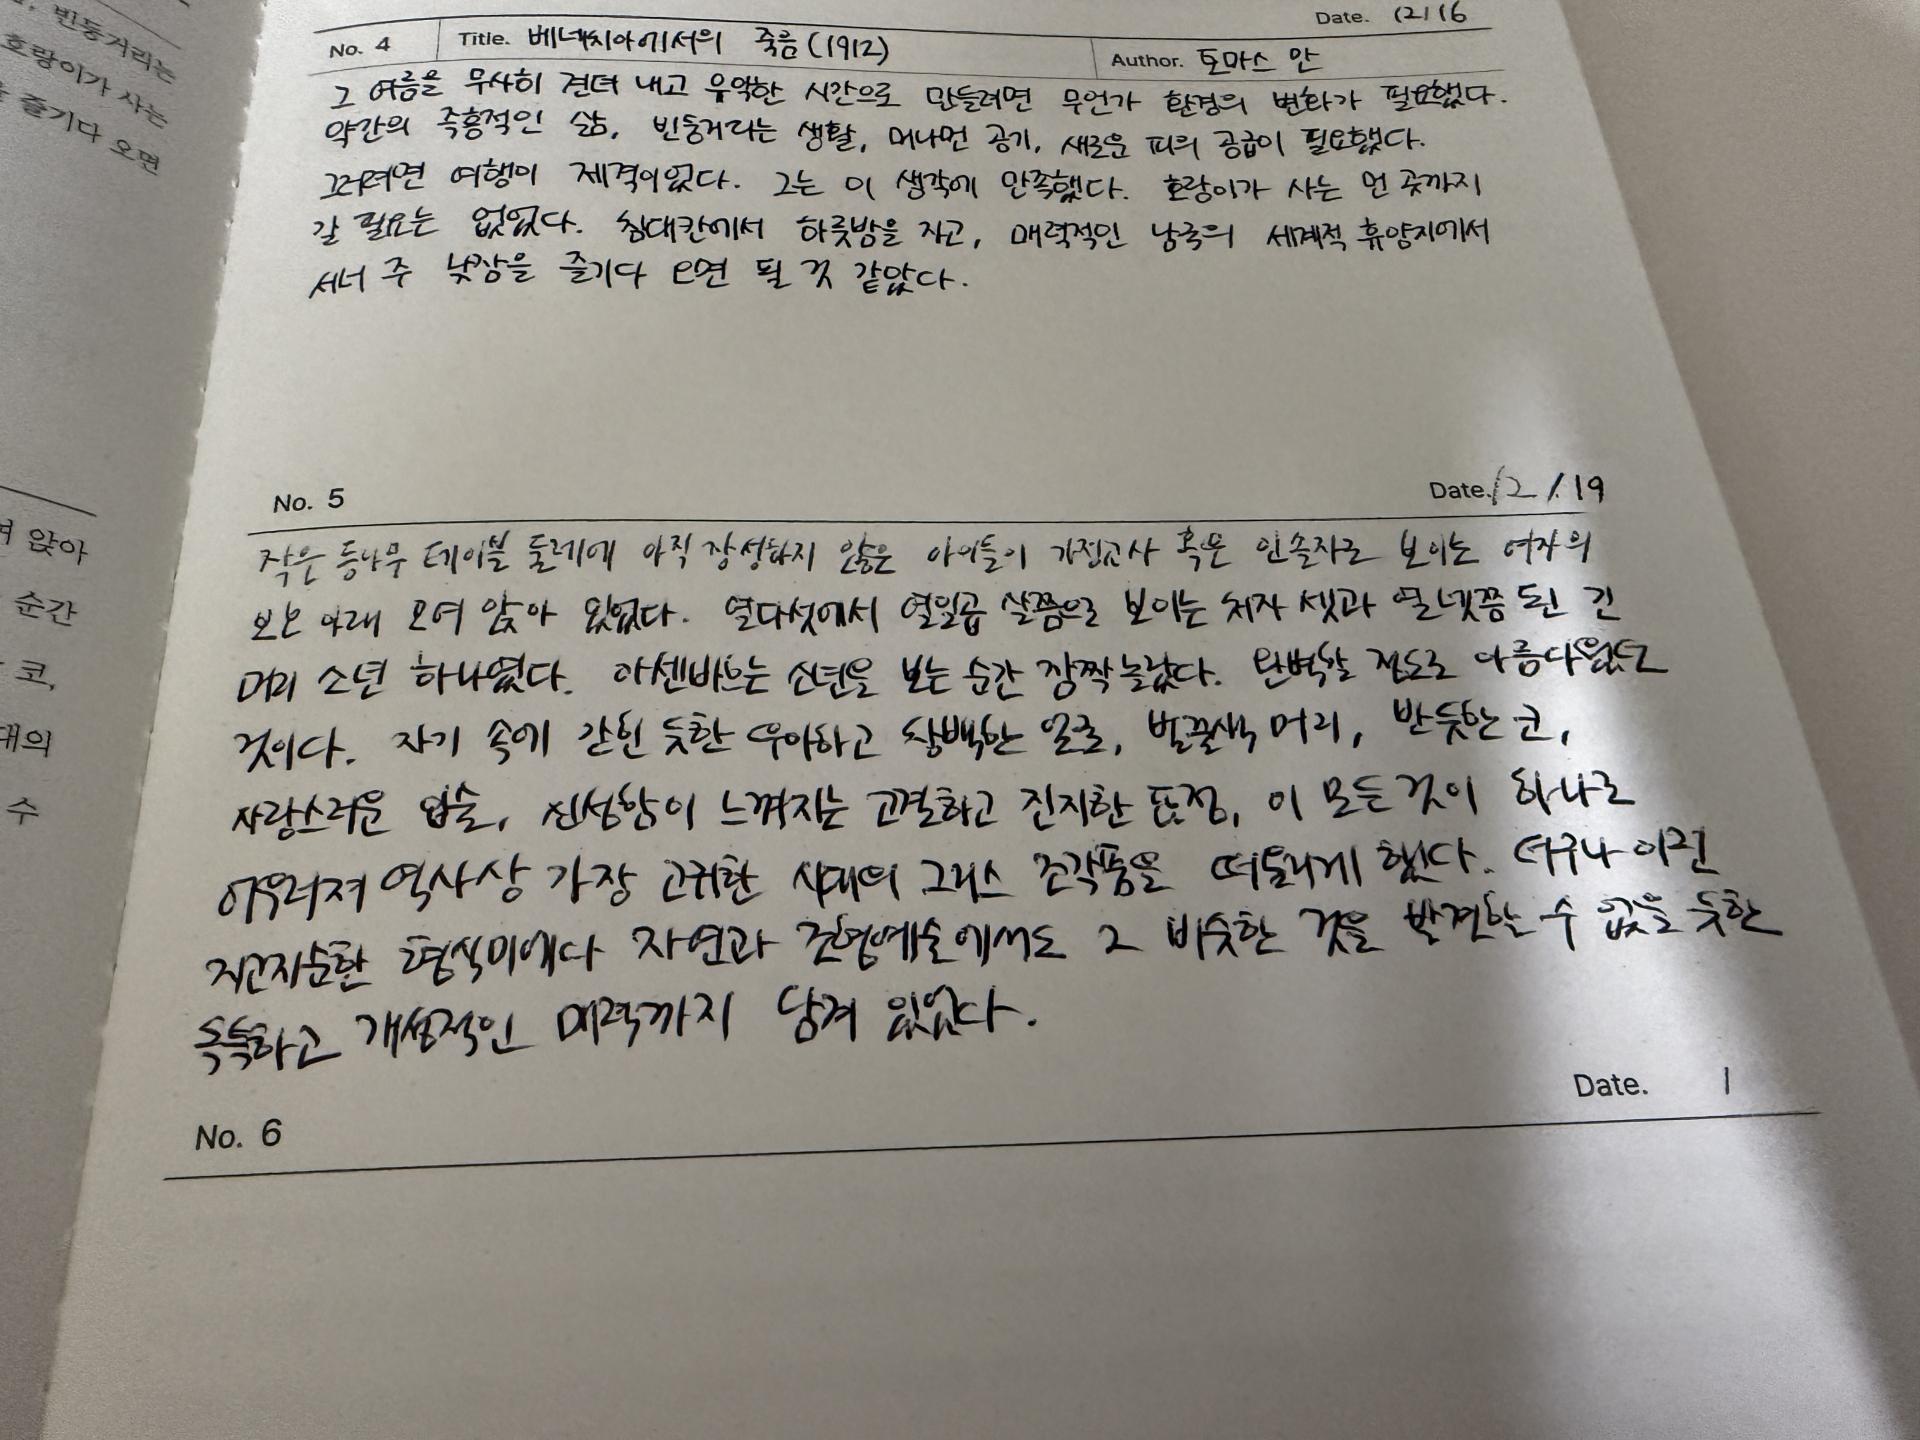 빈둥거리는
호랑이가 사는
즐기다 오면
앉아
순간
코,
대의
수
Date. 12/16
No. 4 Title. 베네치아에서의 죽음(1912) Author. 토마스 만
그 여름을 무사히 견뎌 내고 유익한 시간으로 만들려면 무언가 환경의 변화가 필요했다.
약간의 즉흥적인 삶, 빈둥거리는 생활, 머나먼 공기, 새로운 피의 공급이 필요했다.
그러려면 여행이 제격이었다. 그는 이 생각에 만족했다. 호랑이가 사는 먼 곳까지
갈 필요는 없었다. 침대칸에서 하룻밤을 자고, 매력적인 남국의 세계적 휴양지에서
서너 주 낮잠을 즐기다 오면 될 것 같았다.
No. 5 Date. 12/19
작은 등나무 테이블 둘레에 아직 장성하지 않은 아이들이 가정교사 혹은 인솔자로 보이는 여자의
보호 아래 모여 앉아 있었다. 열다섯에서 열일곱 살쯤으로 보이는 처자 셋과 열네쯤 된 긴
머리 소년 하나였다. 아셴바흐는 소년을 보는 순간 깜짝 놀랐다. 완벽할 정도로 아름다웠던
것이다. 자기 속에 갇힌 듯한 우아하고 창백한 얼굴, 벌꿀색 머리, 반듯한 코,
사랑스러운 입술, 신성함이 느껴지는 고결하고 진지한 표정, 이 모든 것이 하나로
어우러져 역사상 가장 고귀한 시대의 그리스 조각품을 떠올리게 했다. 더구나 이런
지고지순한 형식미에다 자연과 조형예술에서도 그 비슷한 것을 발견할 수 없을 듯한
독특하고 개성적인 매력까지 담겨 있었다.
No. 6 Date. /